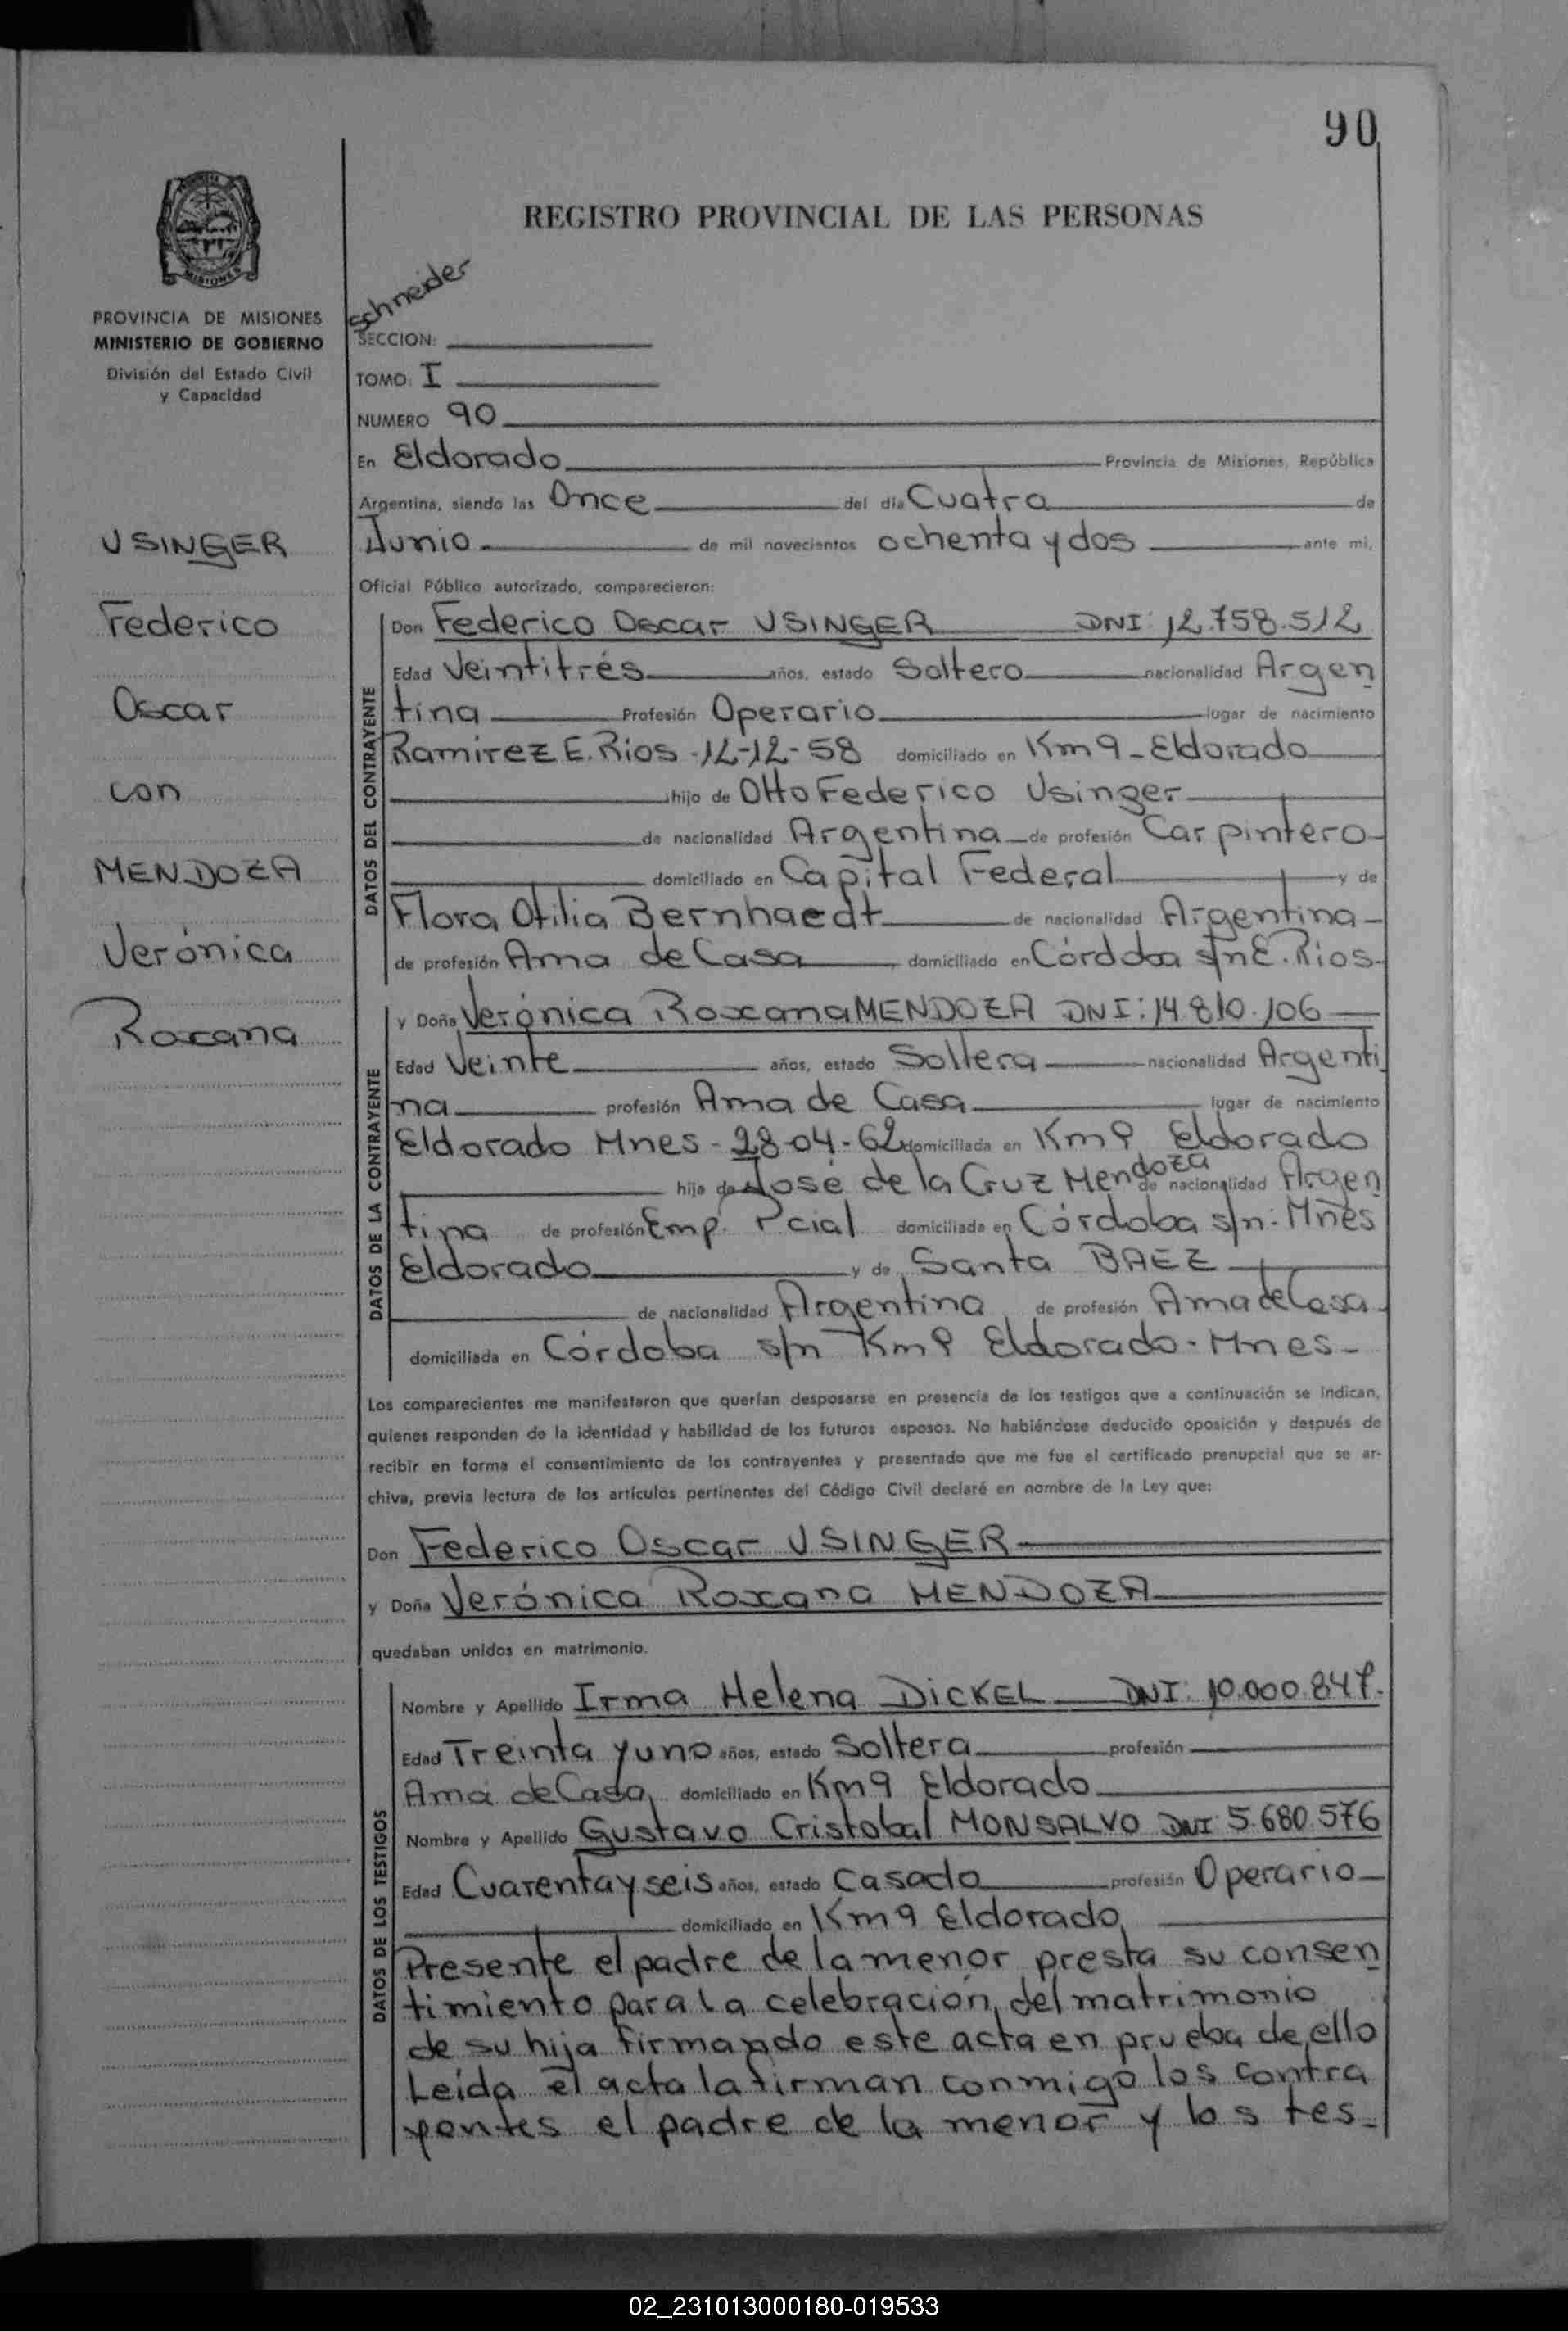 90
REGISTRO PROVINCIAL DE LAS PERSONAS
MISIONES
PROVINCIA DE MISIONES
MINISTERIO DE GOBIERNO
División del Estado Civil
y Capacidad
USINGER
Federico
Oscar
con
MENDOZA
Verónica
Roxana
Schneider
SECCION:
TOMO: I
NUMERO 90
En Eldorado Provincia de Misiones, República
Argentina, siendo las Once del día Cuatro de
Junio de mil novecientos ochenta y dos ante mi,
Oficial Público autorizado, comparecieron:
DATOS DEL CONTRAYENTE
Don Federico Oscar USINGER DNI: 12.758.512
Edad Veintitrés años, estado Soltero nacionalidad Argen
tina Profesión Operario lugar de nacimiento
Ramirez E. Rios - 12-12-58 domiciliado en Km 9 - Eldorado
hijo de Otto Federico Usinger
de nacionalidad Argentina de profesión Carpintero
domiciliado en Capital Federal y de
Flora Otilia Bernhaedt de nacionalidad Argentina
de profesión Ama de Casa domiciliado en Córddba s/n E. Rios
DATOS DE LA CONTRAYENTE
y Doña Verónica Roxana MENDOZA DNI: 14.810.106
Edad Veinte años, estado Soltera nacionalidad Argenti
na profesión Ama de Casa lugar de nacimiento
Eldorado Mnes - 28-04-62 domiciliada en Km 9 Eldorado
hija de José de la Cruz Mendoza de nacionalidad Argen
tina de profesión Emp. Pcial domiciliada en Córdoba s/n - Mnes
Eldorado y de Santa BAEZ
de nacionalidad Argentina de profesión Ama de Casa
domiciliada en Córdoba s/n Km 9 Eldorado - Mnes -
Los comparecientes me manifestaron que querían desposarse en presencia de los testigos que a continuación se indican,
quienes responden de la identidad y habilidad de los futuros esposos. No habiéndose deducido oposición y después de
recibir en forma el consentimiento de los contrayentes y presentado que me fue el certificado prenupcial que se ar-
chiva, previa lectura de los artículos pertinentes del Código Civil declaré en nombre de la Ley que:
Don Federico Oscar USINGER
y Doña Verónica Roxana MENDOZA
quedaban unidos en matrimonio.
DATOS DE LOS TESTIGOS
Nombre y Apellido Irma Helena DICKEL DNI: 10.000.847.
Edad Treinta y uno años, estado Soltera profesión
Ama de Casa domiciliado en Km 9 Eldorado
Nombre y Apellido Gustavo Cristobal MONSALVO DNI: 5.680.576
Edad Cuarenta y seis años, estado Casado profesión Operario
domiciliado en Km 9 Eldorado
Presente el padre de la menor presta su consen
timiento para la celebración del matrimonio
de su hija firmando este acta en prueba de ello
Leída el acta la firman conmigo los contra
yentes el padre de la menor y los tes-
02_231013000180-019533